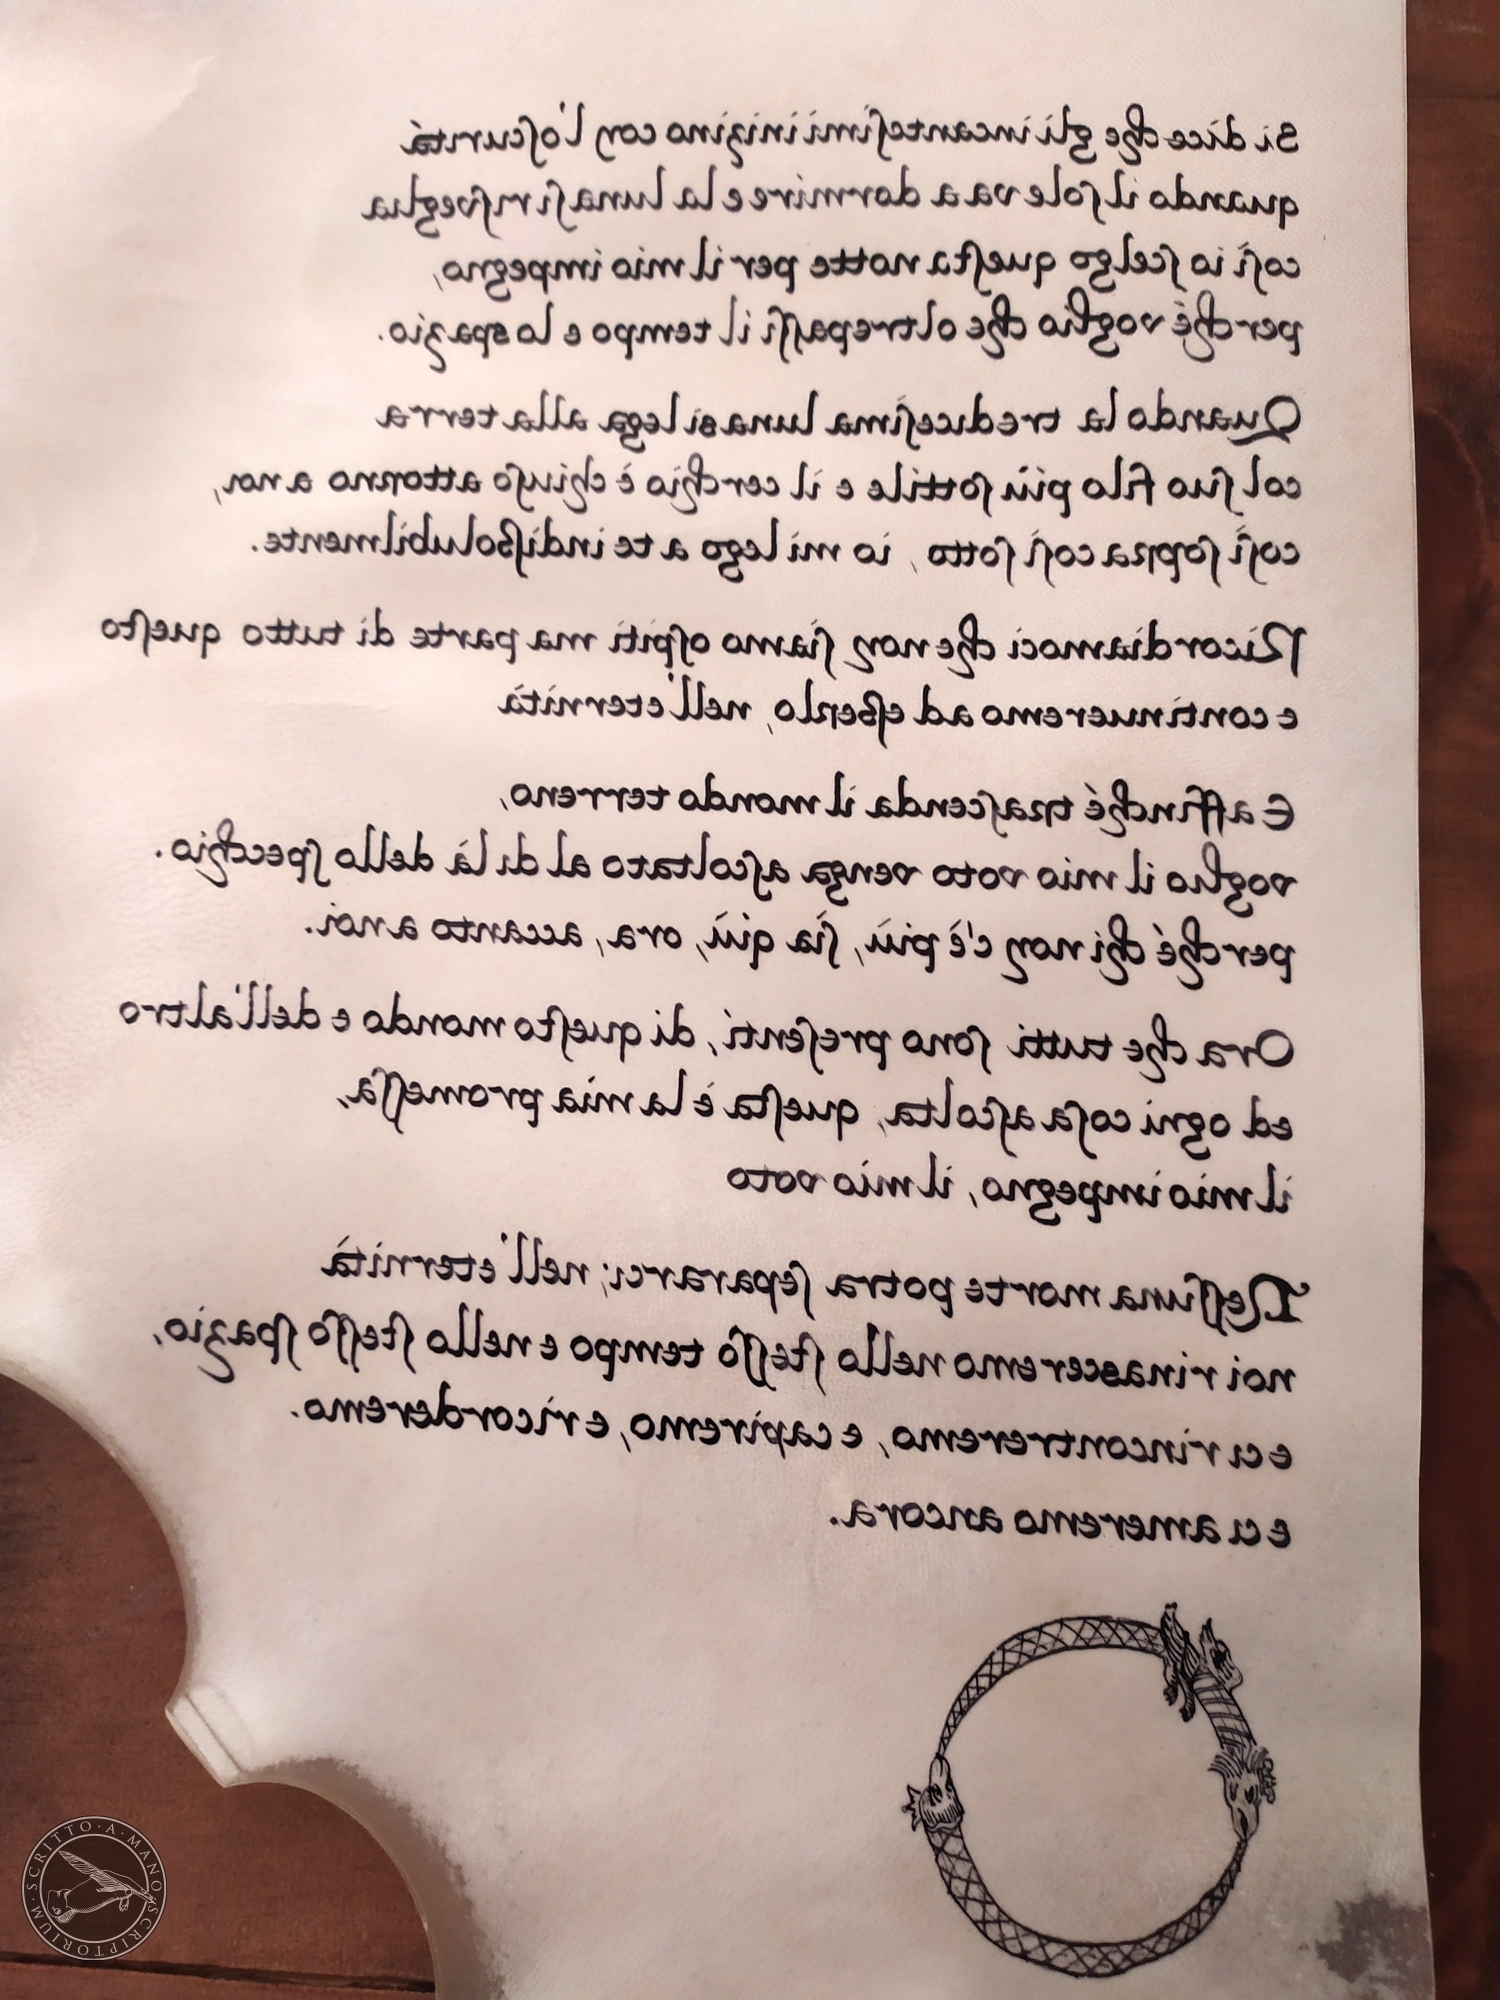 Si dice che gli incantesimi inizino con l'oscurità
quando il sole va a dormire e la luna si risveglia
così io scelgo questa notte per il mio impegno,
perché voglio che oltrepassi il tempo e lo spazio.
Quando la tredicesima luna si lega alla terra
col suo filo più sottile e il cerchio è chiuso attorno a noi,
così sopra così sotto, io mi lego a te indissolubilmente.
Ricordiamoci che non siamo ospiti ma parte di tutto questo
e continueremo ad esserlo, nell'eternità
E affinché trascenda il mondo terreno,
voglio il mio voto venga ascoltato al di là dello specchio.
perché chi non c'è più, sia qiù, ora, accanto a noi.
Ora che tutti sono presenti, di questo mondo e dell'altro
ed ogni cosa ascolta, questa è la mia promessa,
il mio impegno, il mio voto
Nessuna morte potra separarci; nell'eternità
noi rinasceremo nello stesso tempo e nello stesso spazio,
e ci rincontreremo, e capiremo, e ricorderemo.
e ci ameremo ancora.
SCRITTO·A·MANO·SCRIPTORIUM·